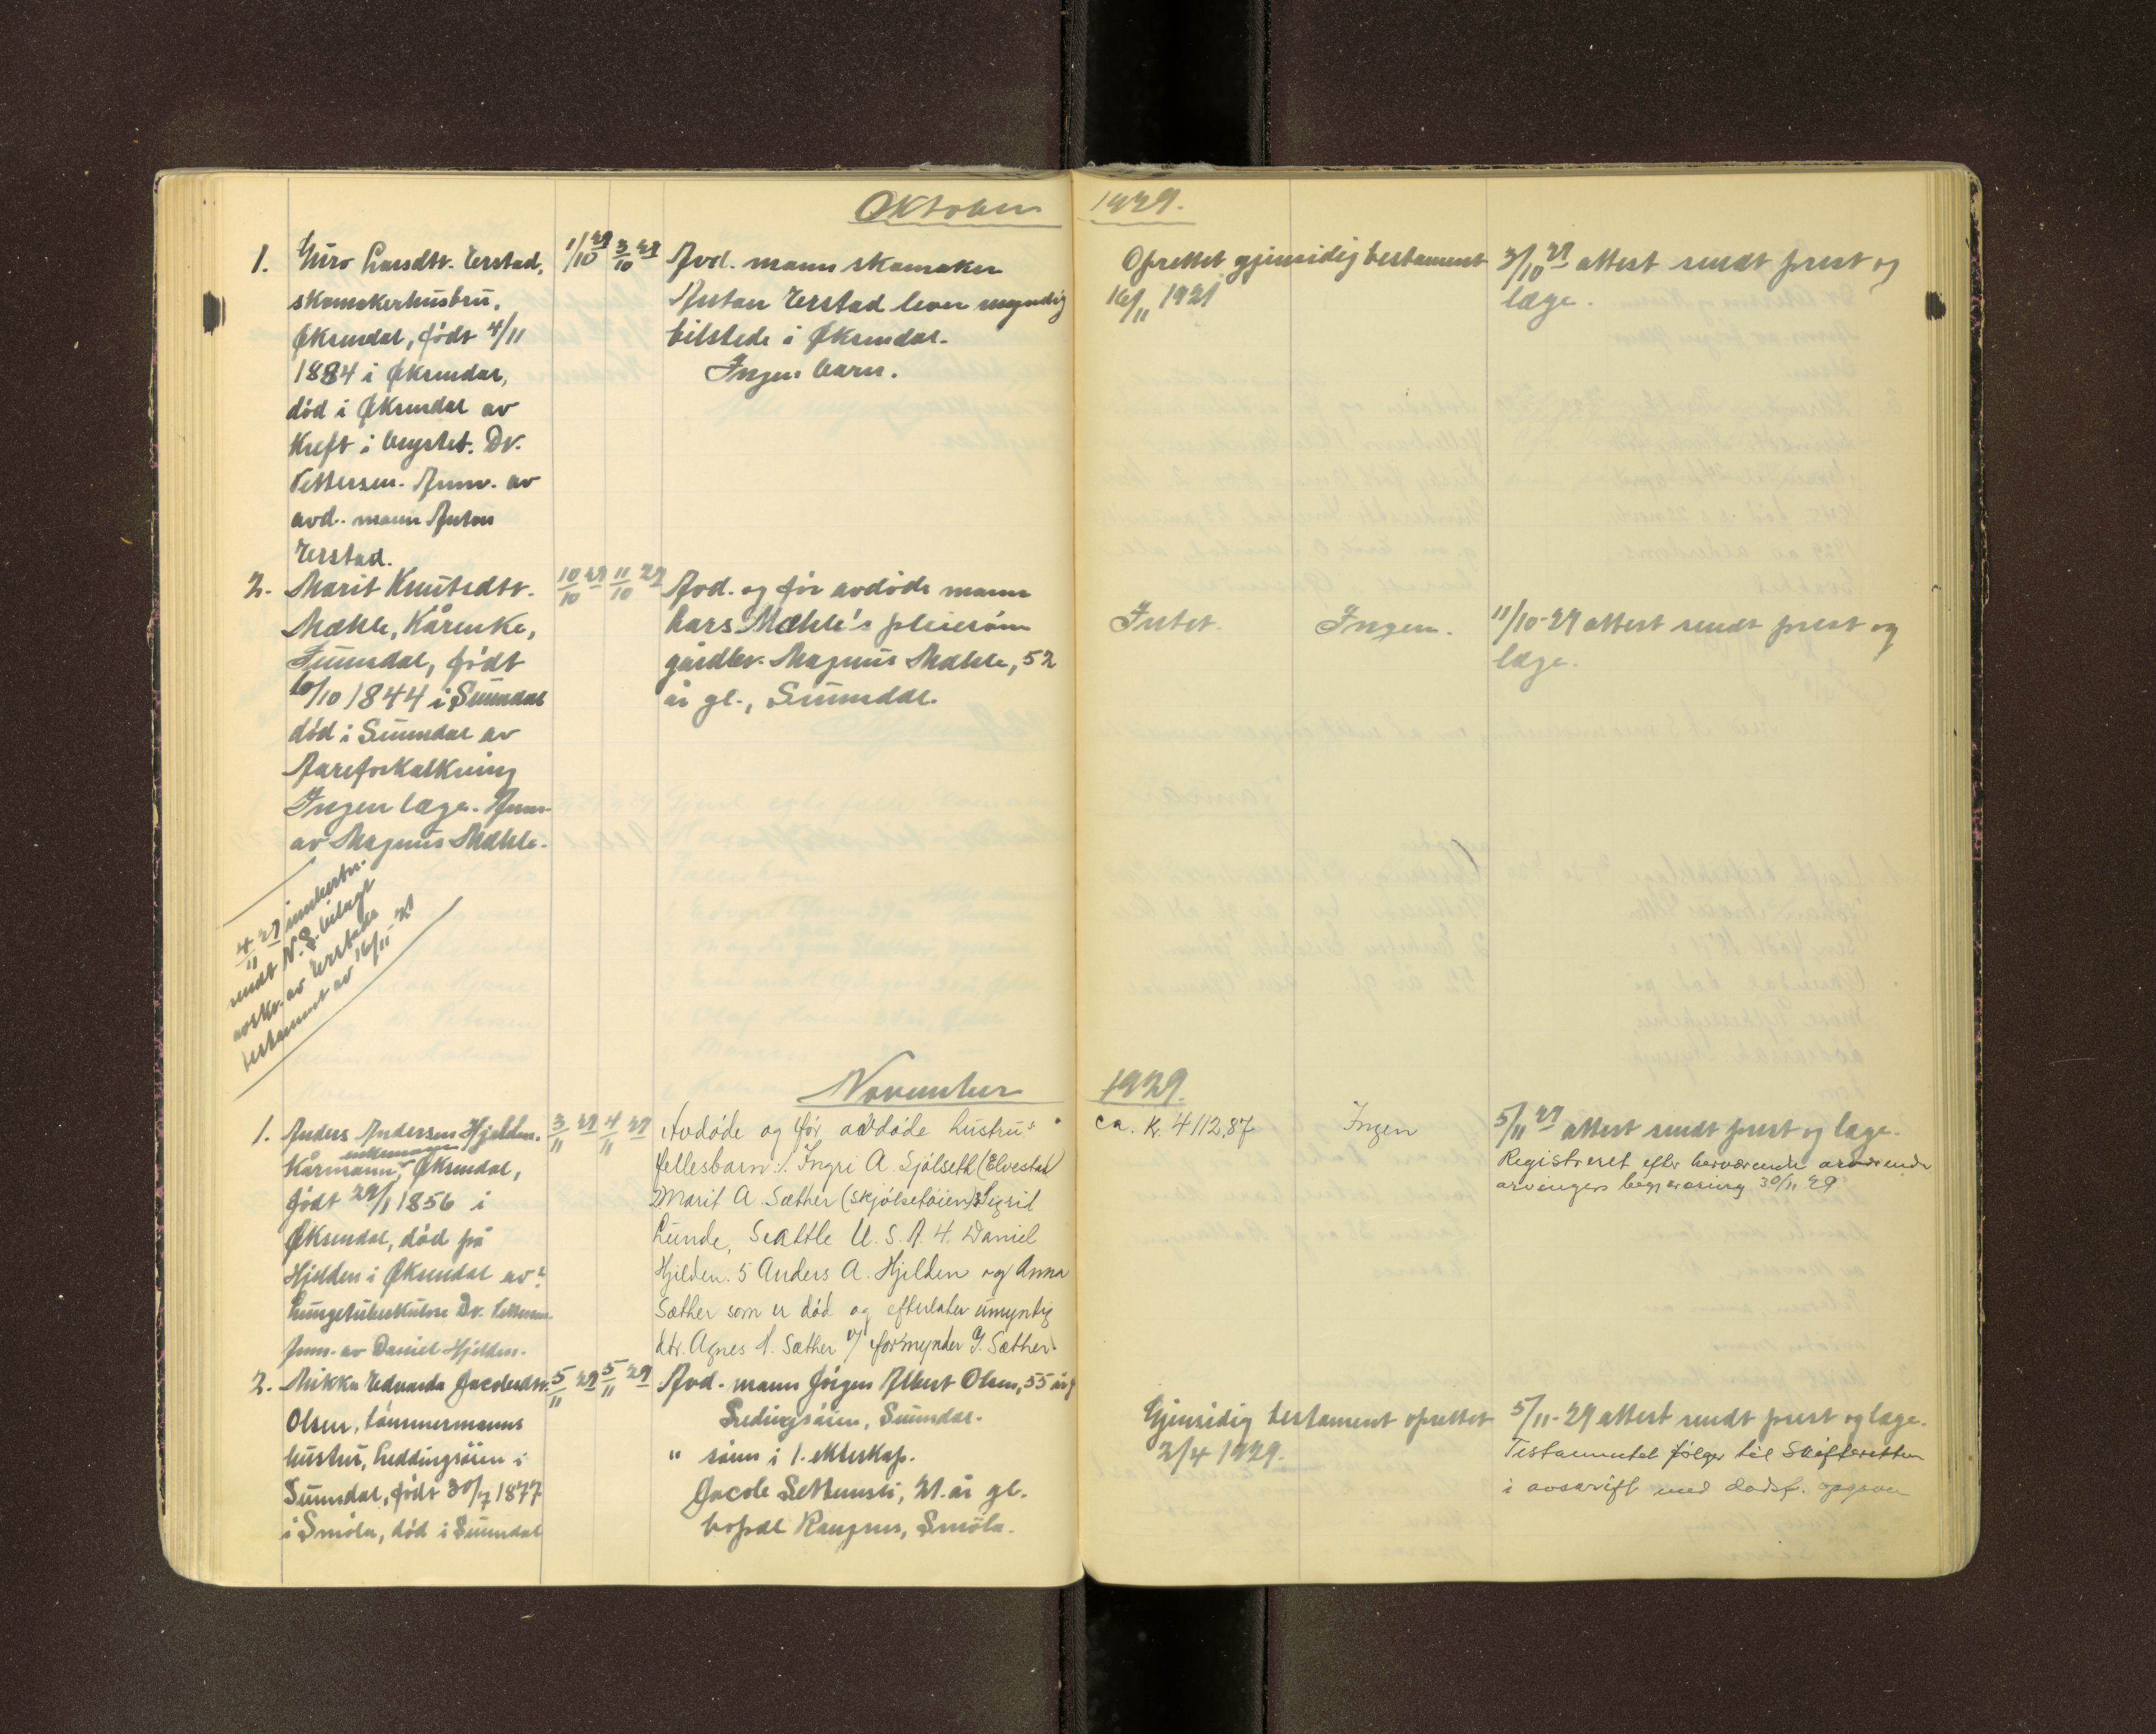 Oktober 1929.
1. Guro Larsdtr. Erstad,
skomakerhusbru,
Øksendal, født 4/11
1884 i Øksendal,
død i Øksendal av
Kreft i brystet. Dr.
Pettersen. Anm. av
avd. mann Anton
Erstad.
1/10 29 3/10 29
Avd. mann skomaker
Anton Erstad lever myndig
tilstede i Øksendal.
Ingen barn.
Oprettet gjensidig testament
16/11 1921
3/10 29 attest sendt prest og
læge.
2. Marit Knutsdtr.
Mæhle, Kårenke,
Sunndal, født
10/10 1844 i Sunndal
død i Sunndal av
Åreforkalkning
Ingen læge. Anm.
av Magnus Mæhle.
10/10 29 11/10 29
Avd. og før avdøde mann
Lars Mæhle's pleiesønn
gårdbr. Magnus Mæhle, 52
år gl., Sunndal.
Intet.
Ingen.
11/10-29 attest sendt prest og
læge.
4/11 29
sendt N.S. bilagt
avskr. av Erstads
testament av 16/11-21
November 1929.
1. Anders Andersen Hjelden.
enkemann
Kårmann, Øksendal,
født 29/1 1856 i
Øksendal, død på
Hjelden i Øksendal av
Lungetuberkulose Dr. Pettersen
Anm. av Daniel Hjelden.
3/11 29 4/11 29
Avdøde og før avdøde hustru's
fellesbarn: 1. Ingri A. Sjølseth (Elvestad)
2 Marit A. Sæther (Skjølsetøien) 3 Sigrid
Lunde, Seattle U.S.A. 4. Daniel
Hjelden. 5 Anders A. Hjelden og Anna
Sæther som er død og efterlater umyntig
dtr. Agnes A. Sæther v/ formynder G. Sæther.
ca. K. 4112,87
Ingen
5/11 29 attest sendt prest og læge.
Registreret efter herværende
arvingers begjæring 30/11 29
2. Mikka Edvarda Jacobsdtr.
Olsen, tømmermanns
hustru, Leddingsøien i
Sunndal, født 30/7 1877
i Smøla, død i Sunndal
5/11 29 5/11 29
Avd. mann Jörgen Albert Olsen, 55 år g
Ledingsøien, Sunndal.
" sønn i 1. ekteskap.
Jacob 21 år gl.
bopæl Smøla.
Gjensidig testament oprettet
2/4 1929.
5/11-29 attest sendt prest og læge.
Testamentet følger til Skifteretten
i avskrift med dødsf. opgaven